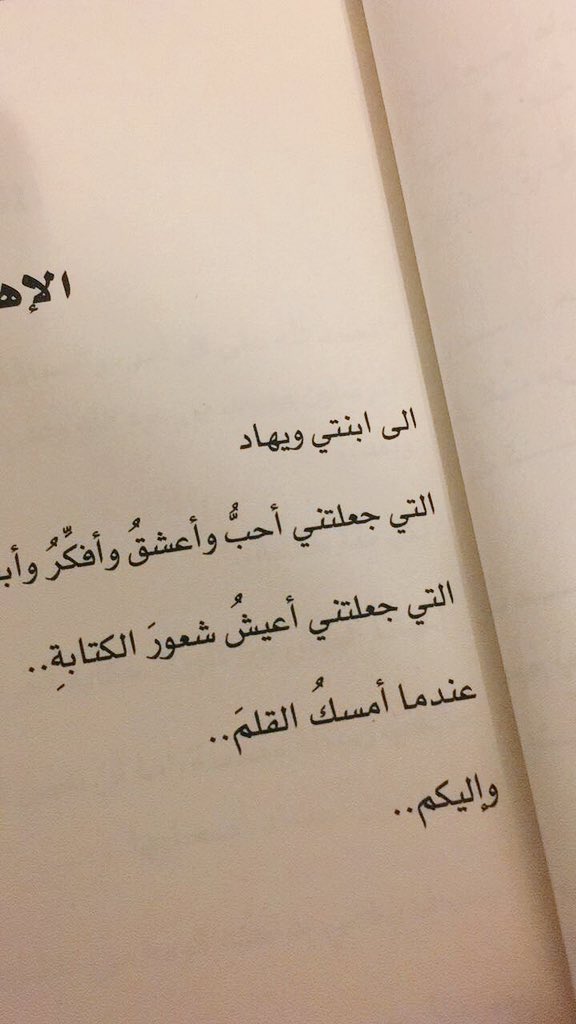 الى ابنتي ويهاد
التي جعلتني أحبُّ وأعشقُ وأفكِّرُ
التي جعلتني أعيشُ شعورَ الكتابةِ..
عندما أمسكُ القلمَ..
وإليكم..